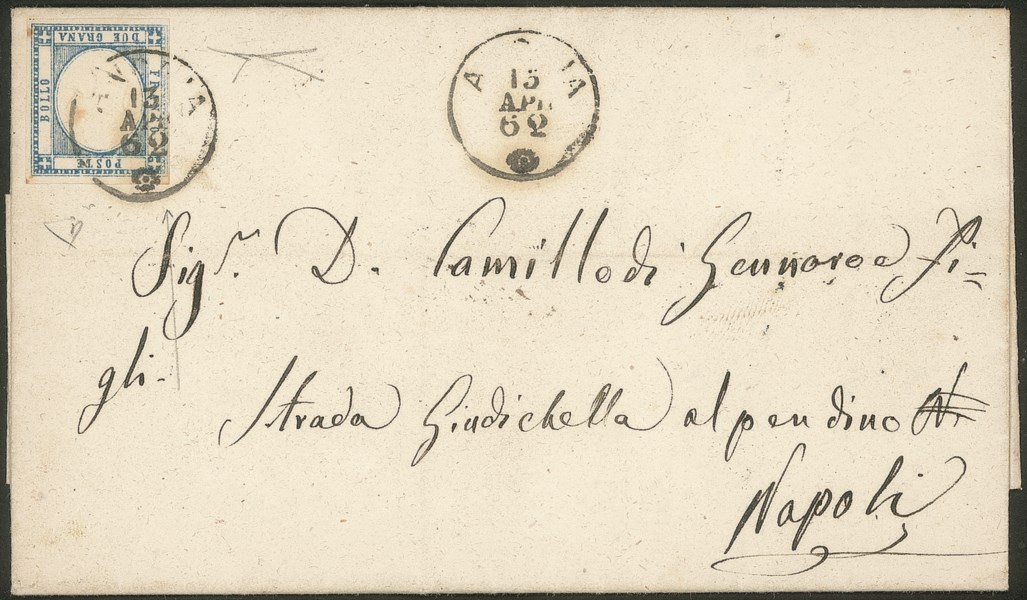 DUE GRANA
BOLLO
POSTE
13
62
A IA
13
APR
62
Sig.r D. Camillo di Gennaro e Fi=
gli-
Strada Giudichella al pendino
Napoli